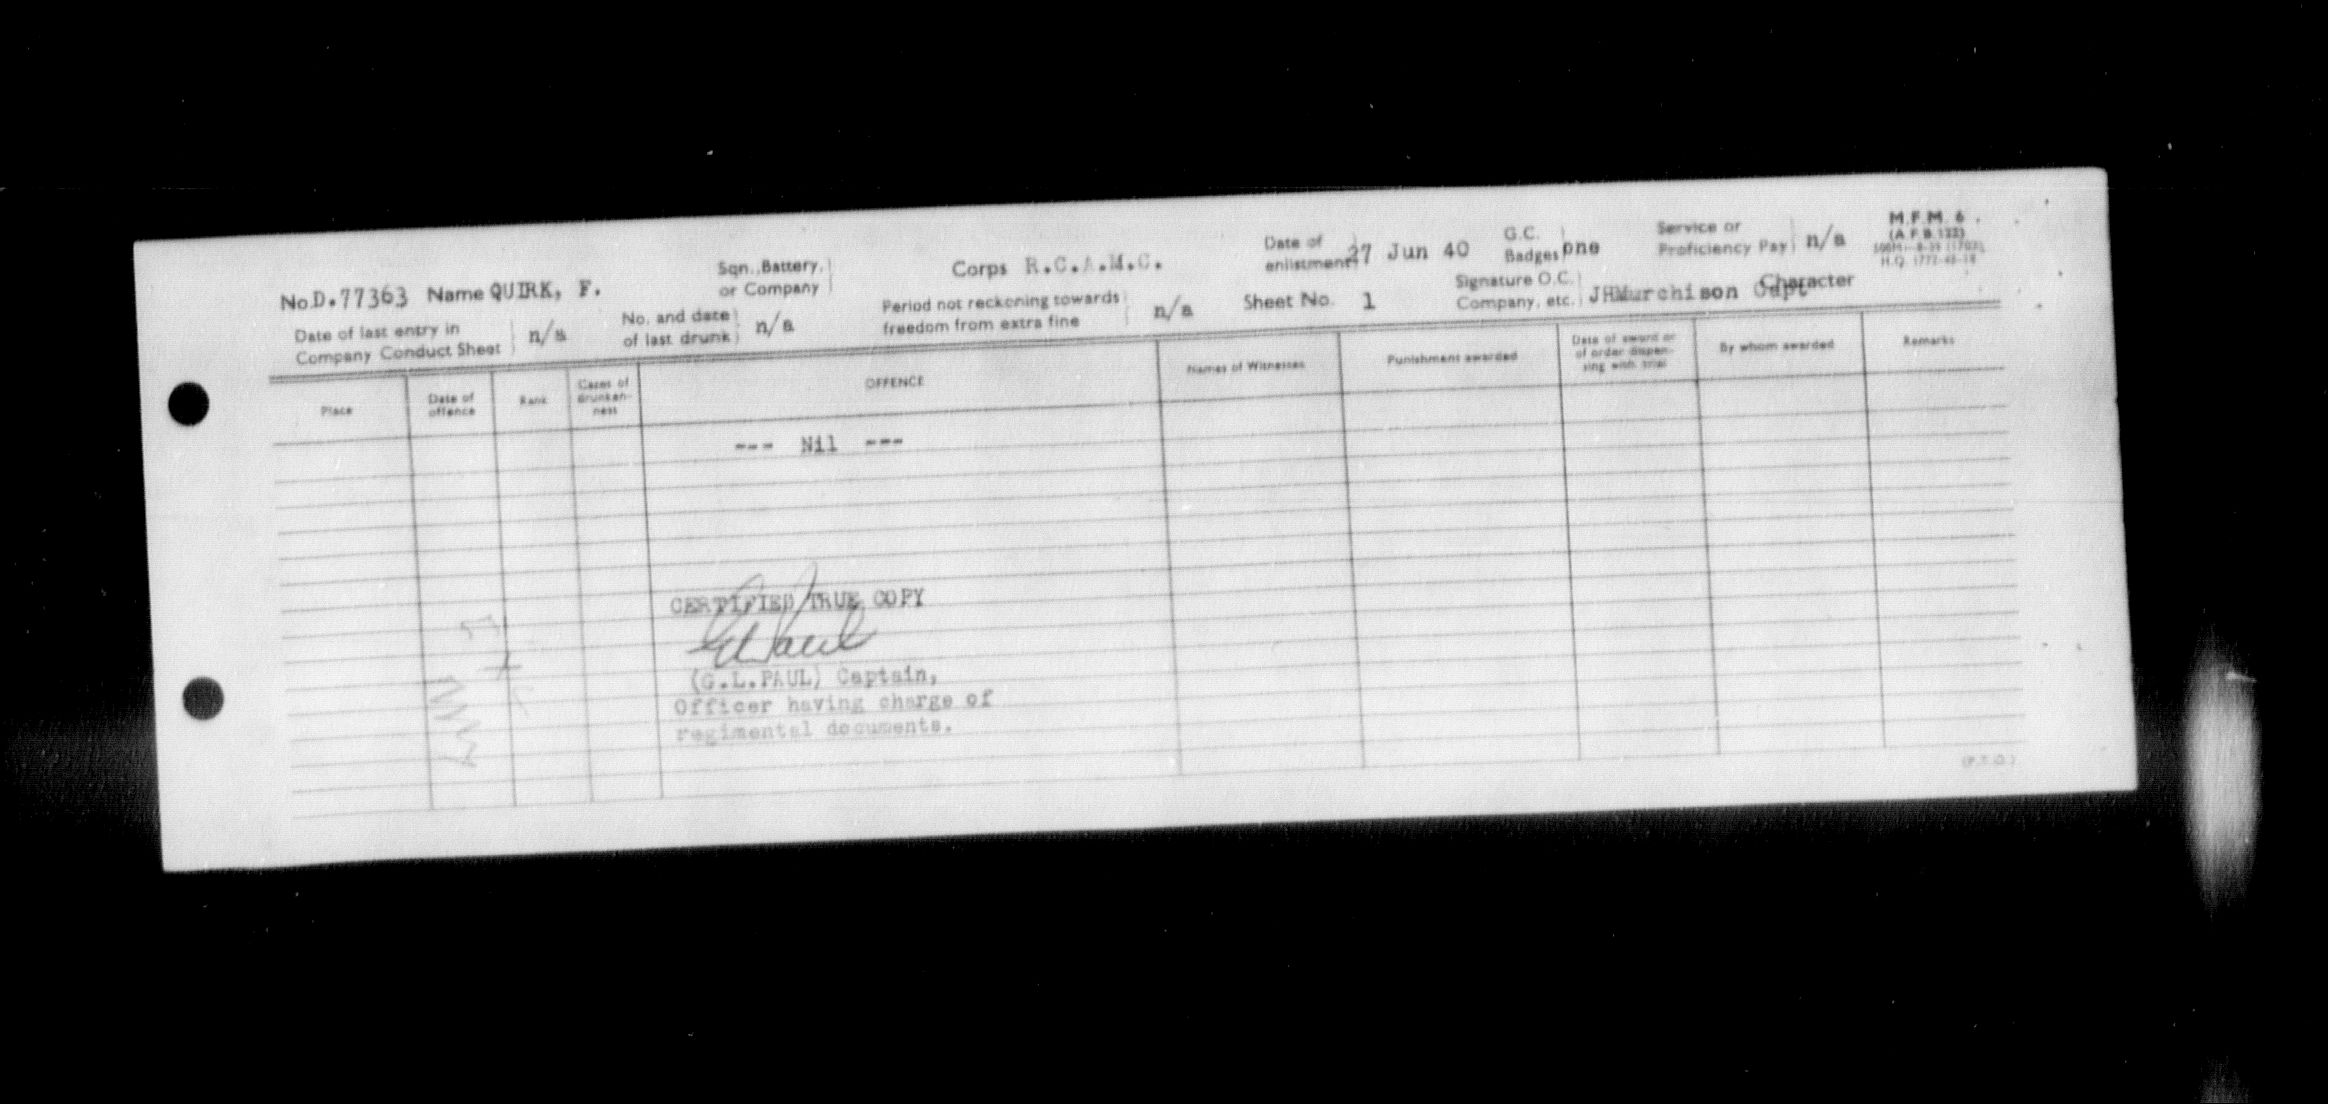 M.F.M. 6.
Date of enlistment 27 Jun 40 G.C. Badges one Service or Proficiency Pay n/a (A.F.B. 122)
No. D.77363 Name QUIRK, F. Sqn., Battery, or Company Corps R.C.A.M.C.
H.Q. 1772-
Date of last entry in Company Conduct Sheet n/a No. and date of last drunk n/a Period not reckoning towards freedom from extra fine n/a Sheet No. 1 Signature O.C. Company, etc. JHMurchison Capt Character
Place Date of offence Rank Cases of drunkenness OFFENCE Names of Witnesses Punishment awarded Date of award or of order dispensing with trial By whom awarded Remarks
--- Nil ---
CERTIFIED TRUE COPY
(G.L.PAUL) Captain,
Officer having charge of
regimental documents.
(P.T.O.)